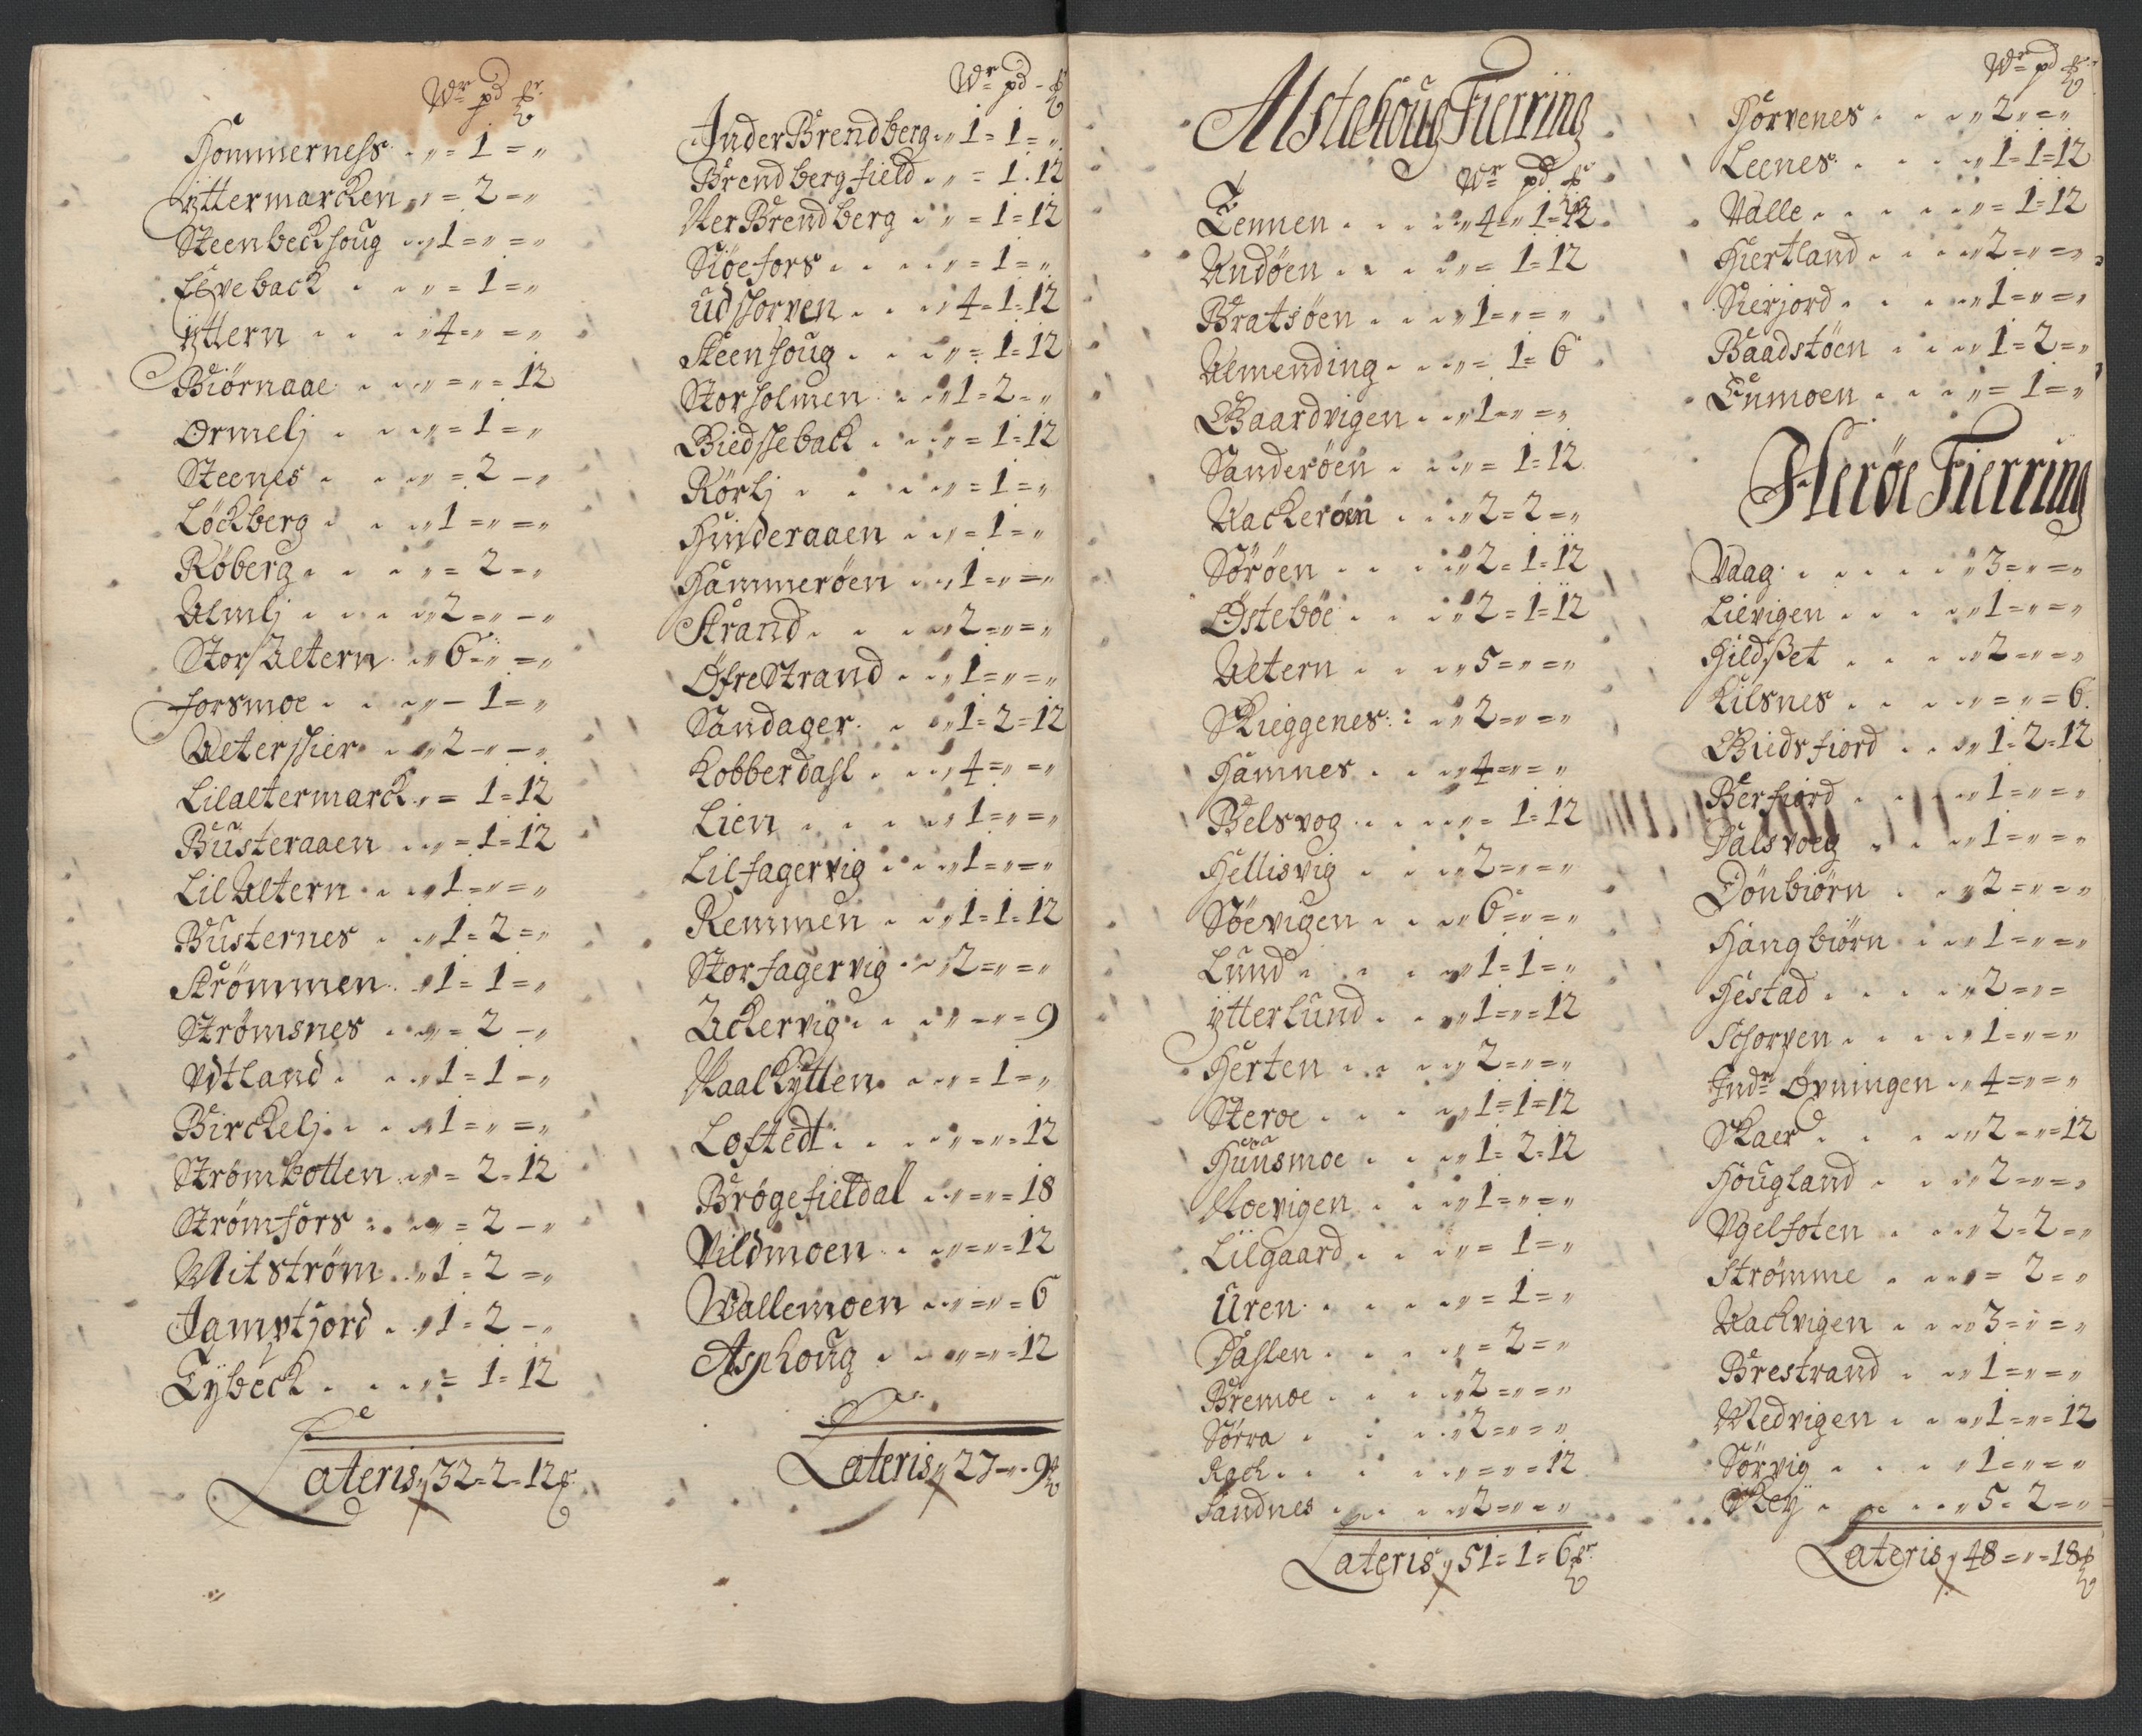 Wr pd
Hommerness . „ = 1 = „
Yttermarcken „ = 2 = „
Steenbeckhoug „ 1 = „ = „
Leveback . „ = 1 = „
Yttern . . „ 4 = „ = „
Biörnaae . . „ = „ = 12
Ormelj . . „ = 1 = „
Steenes . . „ = 2 – „
Löckberg . . „ 1 = „ = „
Röberg . . „ = 2 = „
Almlj . . „ 2 = „ – „
Stor Altern „ 6 = „ = „
Forsmoe . . „ – 1 = „
„ 2 – „ – „
Lilaltermarck „ = 1 = 12
Busteraaen „ = 1 = 12
Lil Altern . . „ 1 = „ = „
Busternes . „ 1 = 2 = „
Strömmen . „ 1 = 1 = „
Strømsnes . „ = 2 – „
Vdtland . . „ 1 = 1 – „
Birckelj . . „ 1 = „ = „
Strømbotten . „ = 2 = 12
Strømfors . „ = 2 – „
Mitström . „ 1 = 2 = „
Jamptjord . „ 1 = 2 – „
Tybeck . . „ = 1 = 12
Lateris „ 32 = 2 = 12
Wr pd
Inder Brendberg „ 1 = 1 = „
Brendbergfield . „ = 1 . 12
Brendberg „ = 1 = 12
Siöefors . . „ = 1 = „
Udskorpen . . „ 4 = 1 = 12
Steenhoug . . „ = 1 = 12
Storholmen . „ 1 = 2 = „
„ = 1 = 12
Rörlj . . „ = 1 = „
Hinderaaen . . „ = 1 = „
Hammeröen . „ 1 = „ = „
Strand . . „ 2 = „ = „
Öfre Strand . „ 1 = „ = „
Sandager . . „ 1 = 2 = 12
Kobberdahl . . „ 4 = „ = „
Lien . . . „ 1 = „ = „
Lilfagervig . . „ 1 = „ = „
Remmen . . „ 1 = 1 = 12
Storfagervig . „ 2 = „ = „
Ackervig . . „ = „ = 9
. . „ = 1 = „
Loftedt . . „ = „ = 12
Brøgefieldal . „ = „ = 18
Vildmoen . . „ = „ = 12
Wallemoen . „ = „ = 6
Asphoug . . „ = „ = 12
Lateris „ 27 = „ = 9
Alstahoug Fierring
Wr pd
Tennen . . . „ 4 = 1 = 12
Andöen . . „ = 1 = 12
Bratsöen . . „ 1 = „ = „
Almending . . „ = 1 = 6
Gaardvigen . . „ 1 = „ = „
Sanderöen . . „ = 1 = 12
Aackeröen . . „ 2 = 2 = „
Söröen . . „ 2 = 1 = 12
Östeböe . . „ 2 = 1 = 12
Altern . . „ 5 = „ = „
Skieggenes . „ 2 = „ = „
Hamnes . . „ 4 = „ = „
Belsvog . . „ = 1 = 12
Hellisvig . . „ 2 = „ = „
Söevigen . . „ 6 = „ = „
Lund . . „ 1 = 1 = „
Ytterlund . . „ 1 = „ = 12
Herten . . „ 2 = „ = „
Steroe . . „ 1 = 1 = 12
Hunsmoe . . „ 1 = 2 = 12
Moevigen . . „ 1 = „ = „
Lilgaard . . „ = 1 = „
Uren . . . „ = 1 = „
Dahlen . . . „ = 2 = „
Bremoe . . „ 2 = „ = „
Sörra . . „ 2 = „ = „
Rach . . . „ = „ = 12
Sandnes . . „ 2 = „ = „
Lateris „ 51 = 1 = 6
Wr pd
Horvenes . . „ 2 „ = „
Leenes . . . „ 1 = 1 = 12
Valle . . . „ = 1 = 12
Hiertland . . „ 2 = „ = „
Sierjord . . „ 1 = „ = „
Baadstöen . . „ 1 = 2 = „
. . „ = 1 = „
Heröe Fierring
Vaag . . . „ 3 = „ = „
Lievigen . . „ 1 = „ = „
Hildset . . „ 2 = „ = „
Kilsnes . . „ = „ = 6
Giedsfiord . . „ 1 = 2 = 12
Berfiord . . „ 1 = „ = „
Dalsvoeg . . „ 1 = „ = „
Dönbiörn . . „ 2 = „ = „
Hangbiörn . . „ 1 = „ = „
Hestad . . . „ 2 = „ =
Schorpen . . „ 1 = „ = „
Indr Øvningen „ 4 = „ = „
Skaer . . „ 2 = „ = 12
Hougland . . „ 2 = „ = „
Vgelfoten . . „ 2 = 2 = „
Strømme . . „ = 2 = „
Aackvigen . . „ 3 = „ = „
Brestrand . . „ 1 = „ = „
Medvigen . . „ 1 = „ = 12
Sörvig . . „ 1 = „ = „
. . „ 5 = 2 = „
Lateris „ 48 = „ = 18